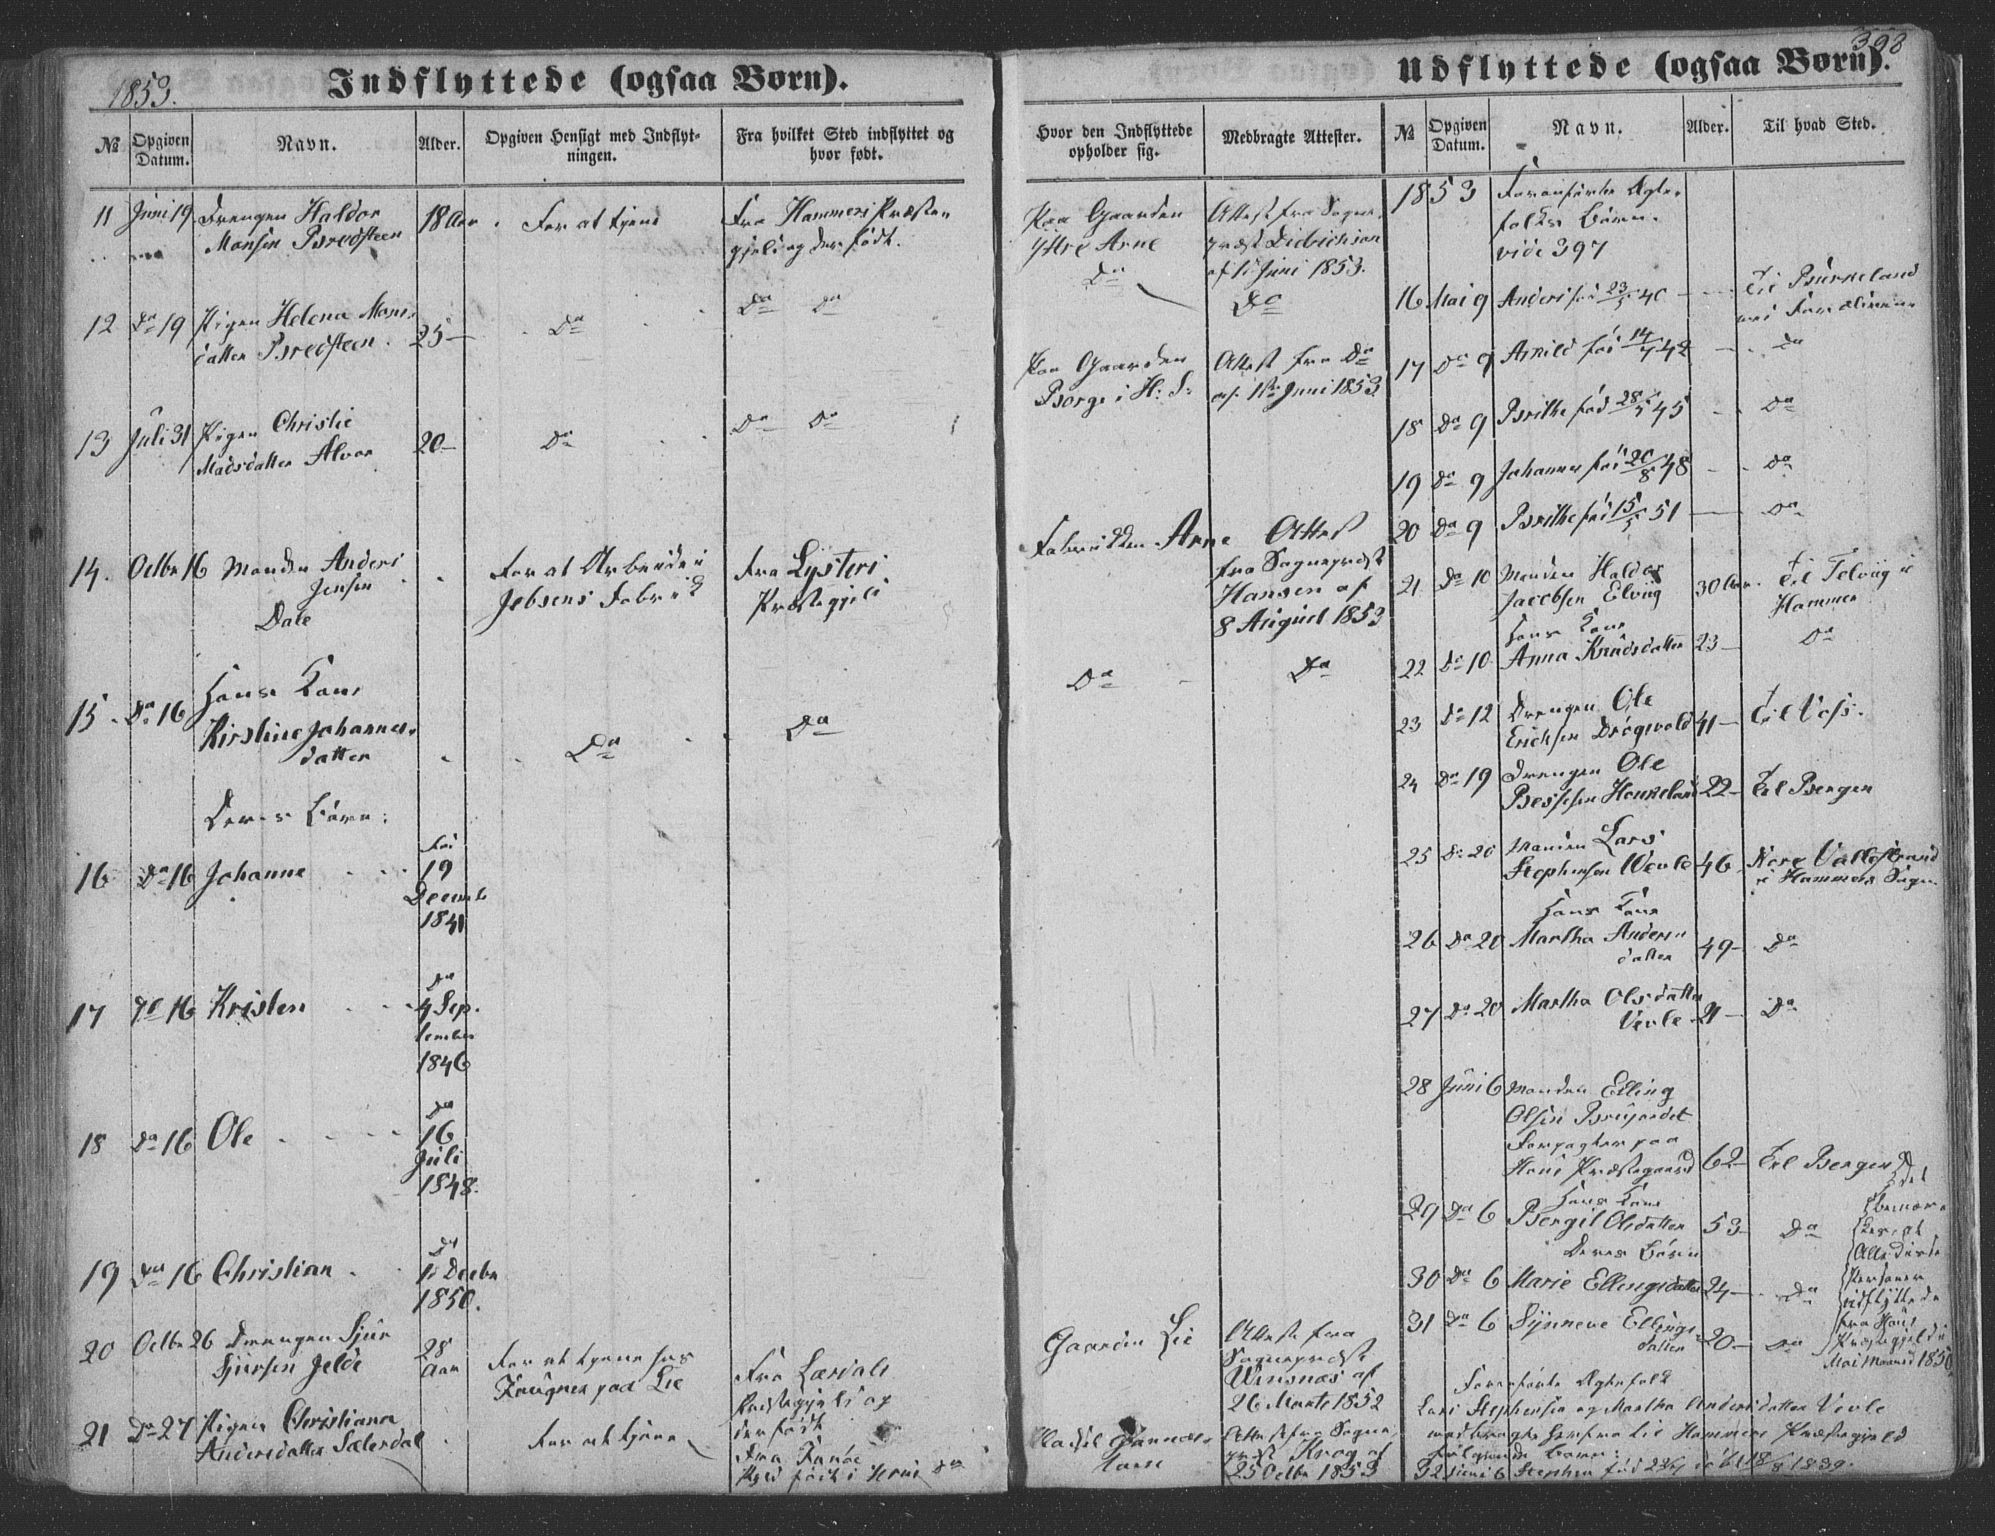 1853.
Indflyttede (ogsaa Børn).
№
Opgiven Datum.
Navn.
Alder.
Opgiven Hensigt med Indflytningen.
Fra hvilket Sted indflyttet og hvor født.
Hvor den Indflyttede opholder sig.
Medbragte Attester.
11 Juni 19 Drengen Haldor 18 Aar For at tjene Fra Hammers Præste
Monsen Bredsteen gjeld og der født.
Paa Gaarden Attest fra Sogne
Ytre Arne præst Didrichsen
af 1 Juni 1853.
12 Do 19 Pigen Helena Mons 25 Do Do Do
datter Bredsteen
Do Do
13 Juli 31 Pigen Christie 20 Do Do Do
Madsdatter Alvor
Paa Gaarden Attest fra Do
Borge i H: S: af 1ste Juni 1853
14. Octbr 16 Manden Anders For at Arbeide i Fra Lysters
Jensen Jebsens Fabrik Præstegjeld
Dale
Fabrikken Arne Attest
fra Sognepræst
Hansen af
8 August 1853
15 Do 16 Hans Kone
Kirstine Johannes Do Do
datter
Do Do
Deres Børn:
16 Do 16 Johanne
Fød
19
Decemb
1841
17 Do 16 Kristen
Do
4 Sep
tember
1846
18 Do 16 Ole
Do
16
Juli
1848.
19 Do 16 Christian
Do
Decbr
1850.
20 Octbr 26 Drengen Sjur 28
Sjursen Jelde Aar For at tjene hos Fra Lærdals
paa Lie Præstegjeld og
der født
Gaarden Lie Attest fra
Sognepræst
Winsnæs af
26 Marts 1852
21 Do 27 Pigen Christiana For at tjene
Andersdatter Sælerdal
Attest fra Sogne
præst Krog af
25 Octbr 1853
398
Udflyttede (ogsaa Børn).
№
Opgiven Datum.
Navn.
Alder.
Til hvad Sted.
1853 Foranførte Ægte
folks Børn
vide 397
16 Mai 9 Anders fød 23/5 40 Til Birkeland
med Forældrene
17 Do 9 Arnild fød 14/7 42 Do
18 Do 9 Brithe fød 28/5 45 Do
19 Do 9 Johanne fød 20/8 48 Do
20 Do 9 Brithe fød 15/5 51 Do
21 Do 10 Manden Haldor 30 Aar Til Telviig i
Jacobsen Elviig Hammer
Hans Kone
22 Do 10 Anna Knudsdatter 23 Do
23 Do 12 Drengen Ole
Erichsen Drøgsvold 41 Til Voss.
24 Do 19 Drengen Ole
Houkeland 22 Til Bergen
25 Do 20 Manden Lars
Stephensen Wevle 46 Nere Vallestrand
i Hammers Sogn
Hans Kone
26 Do 20 Martha Anders 49 Do
datter
27 Do 20 Martha Olsdatter
Vevle 21 Do
28 Juni 6 Manden Elling
Olsen
Forpagter paa
Hous Præstegaard 62 Til Bergen
Hans Kone
29 Do 6 Bergit Olsdatter 53 Do
Deres Børn
30 Do 6 Marie Ellingsdatter 24 Do
31 Do 6 Synneve Ellings
datter 20 Do
det
bemær
kes, at
Alle disse
Personer
udflyttede
fra Hous
Præstegjeld i
Mai Maaned 1850
Foranførte Ægtefolk
Lars Stephensen og Martha Andersdatter Vevle
medbragte herfra til Hammers Præstegjeld
følgende Børn:
32 Juni 6 Stephen fød 1839.